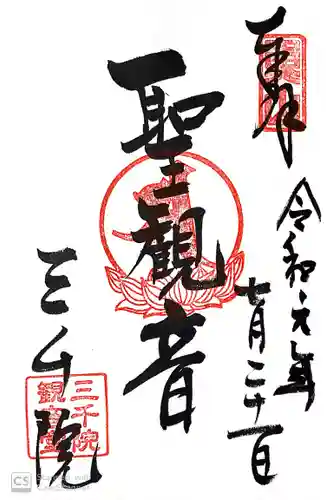 奉拝
令和元年
七月二十一日
聖観音
三千院
三千院
観音堂
CS